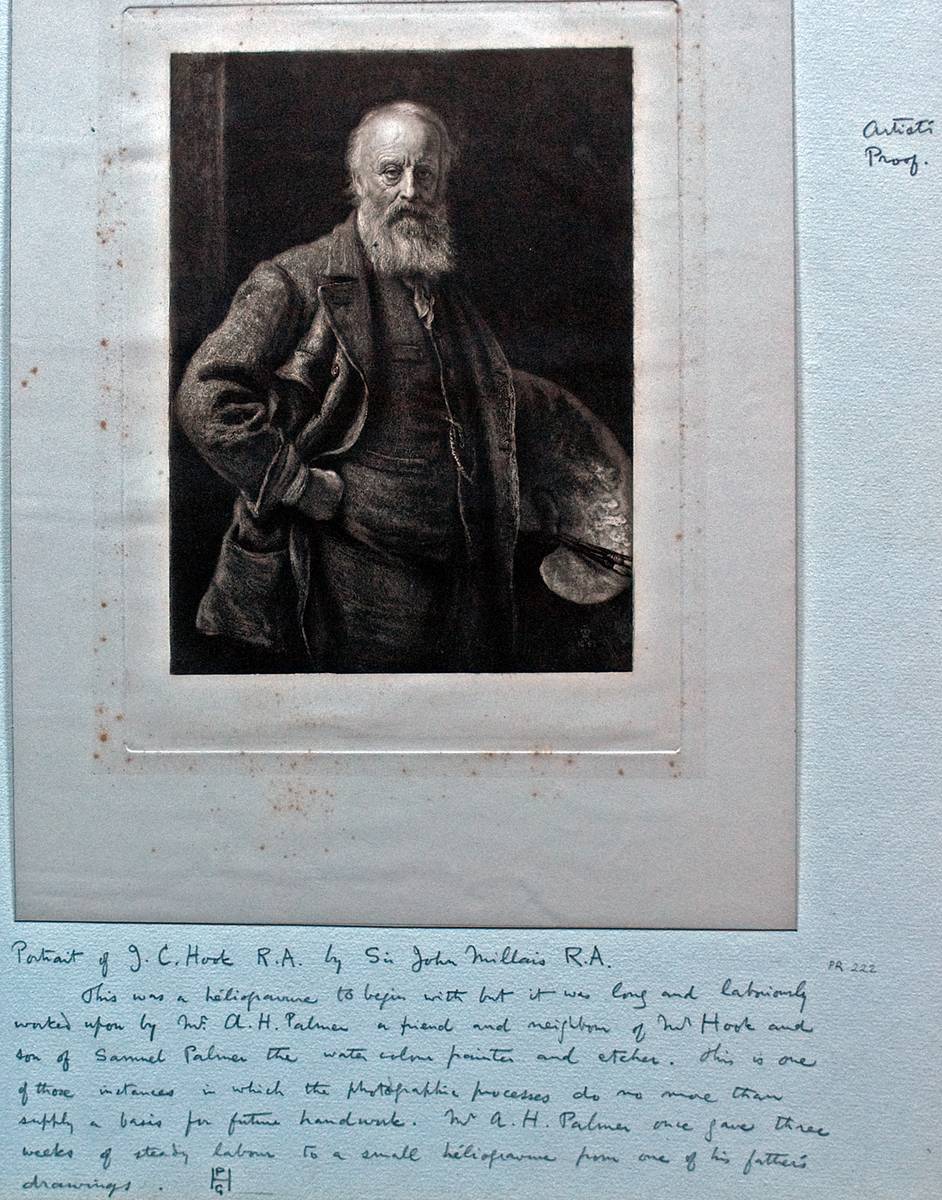 Artist's
Proof.
Portrait of J. C. Hook R.A. by Sir John Millais R.A.
PR 222
This was a héliogravure to begin with but it was long and laboriously
worked upon by Mr. A. H. Palmer a friend and neighbour of Mr Hook and
son of Samuel Palmer the water colour painter and etcher. This is one
of those instances in which the photographic processes do no more than
supply a basis for future handwork. Mr A. H. Palmer once gave three
weeks of steady labour to a small héliogravure from one of his father's
drawings. PHG